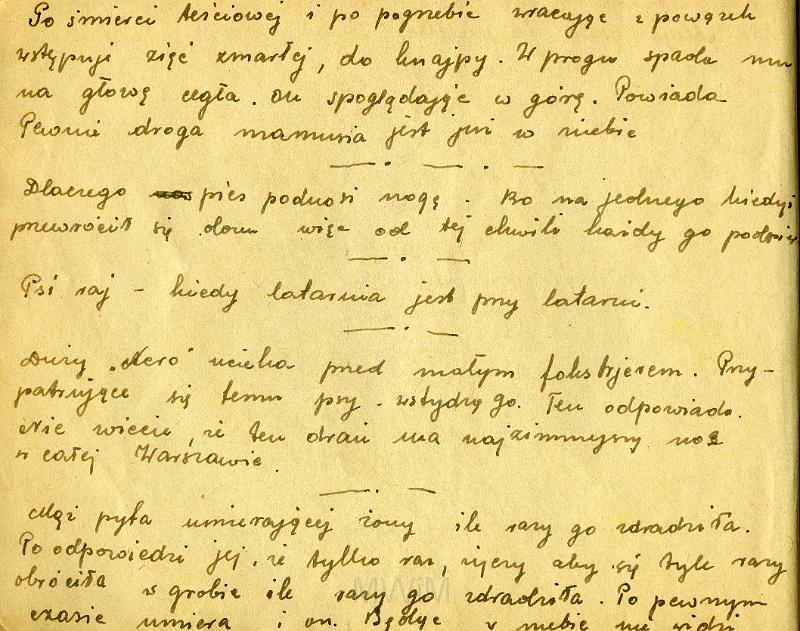 Po śmierci teściowej i po pogrzebie wracając z powązek
wstępuje zięć zmarłej, do knajpy. W progu spada mu
na głowę cegła. on spoglądając w górę. Powiada
Pewnie droga mamusia jest już w niebie
Dlaczego pies podnosi nogę. Bo na jednego kiedyś
przewrócił się dom więc od tej chwili każdy go
Psi raj - kiedy latarnia jest przy latarni.
Duży "Nero" ucieka przed małym foksterjerem. Przy-
patrujące się temu psy. wstydzą go. Ten odpowiada.
Nie wiecie, że ten drań ma najzimniejszy nos
w całej Warszawie.
Mąż pyta umierającej żony ile razy go zdradziła.
Po odpowiedzi jej, że tylko raz, życzy aby się tyle razy
obróciła w grobie ile razy go zdradziła. Po pewnym
czasie umiera i on. Będąc w niebie nie widzi
MWiM